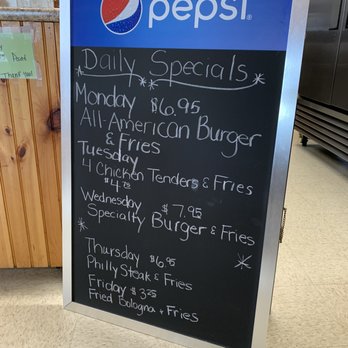 pepsi
Daily Specials
Monday $6.95
All-American Burger
& Fries
Tuesday
4 Chicken Tenders & Fries
Wednesday $7.95
Specialty Burger & Fries
Thursday $6.95
Philly Steak & Fries
Friday $3.25
Fried Bologna + Fries
Thank You!